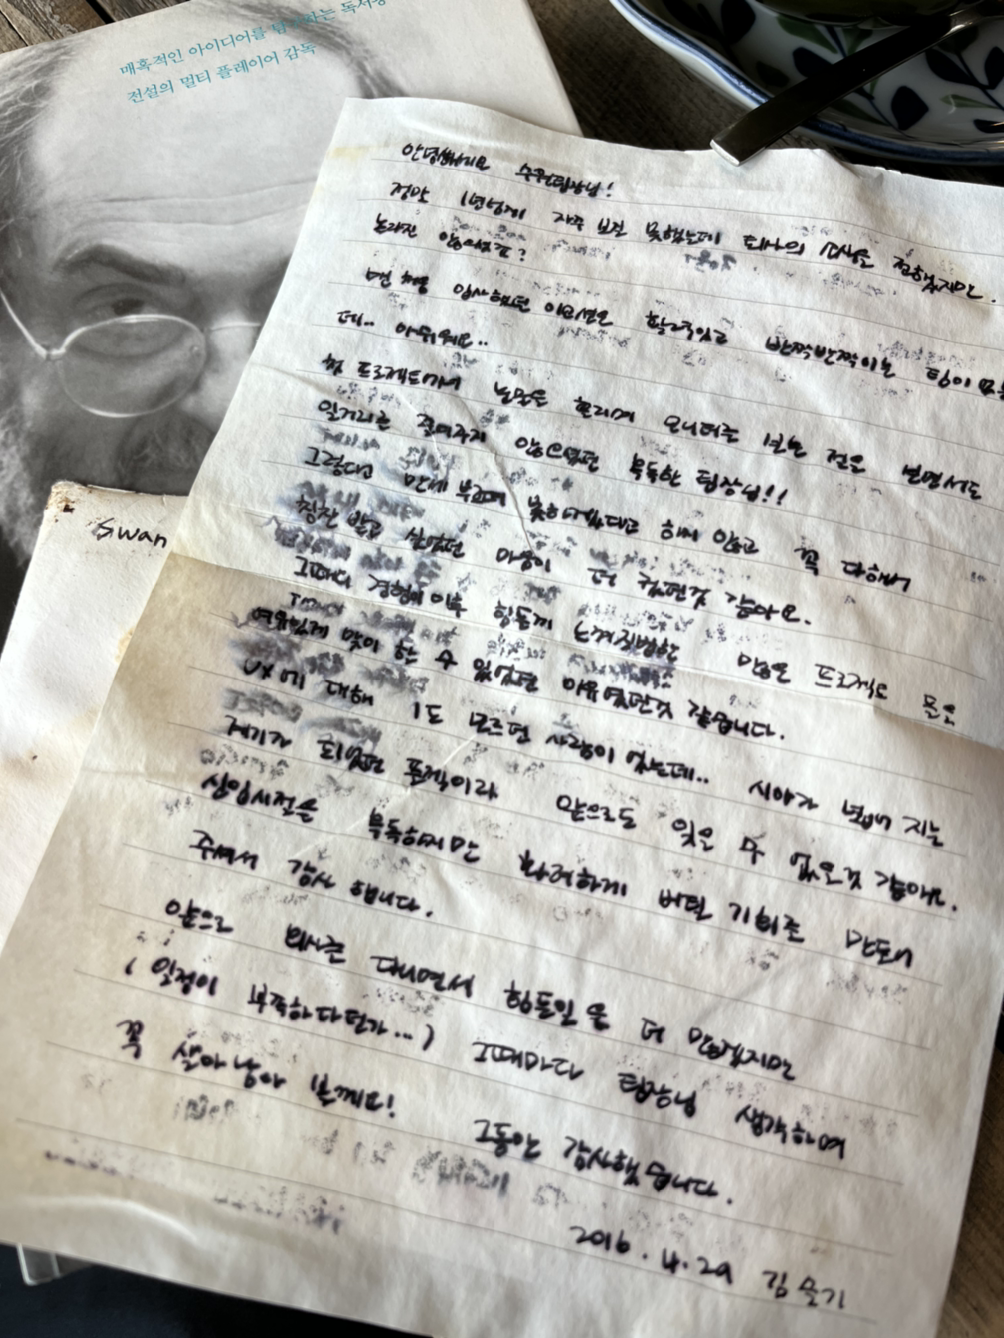 매혹적인 아이디어를 탐구하는 독서광
전설의 멀티 플레이어 감독
Swan
안녕하세요 수완팀장님!
정말 1년넘게 자주 보진 못했는데 퇴사의 소식을 전했지만.
놀라진 않으셨죠?
맨 처음 입사했던 이유셨던 활력있고 반짝반짝이는 팀이
데.. 아쉬워요..
첫 프로젝트에서 눈물을 흘리며 모니터를 보는 저를 보면서도
일거리를 줄여주지 않으셨던 독한 팀장님!!
그렇다고 못하겠다고 하지 않고 꼭 다해서
칭찬 받고 싶었던 마음이 더 컸던것 같아요.
그때의 경험이 이후 힘들게 느껴질법한 많은 프로젝트 들을
여유있게 맞이 할 수 있었던 이유였던것 같습니다.
UX에 대해 1도 모르던 사람이 었는데.. 시야가 넓어 지는
계기가 되었던 프로젝이라 앞으로도 잊을 수 없을것 같아요.
신입시절을 혹독하지만 화려하게 버틸 기회를 만들어
주셔서 감사 합니다.
앞으로 회사를 다니면서 힘든일을 더 많겠지만
(일정이 부족하다던가...) 그때마다 팀장님 생각하며
꼭 살아남아 볼께요!
그동안 감사했습니다.
2016.4.29 김슬기